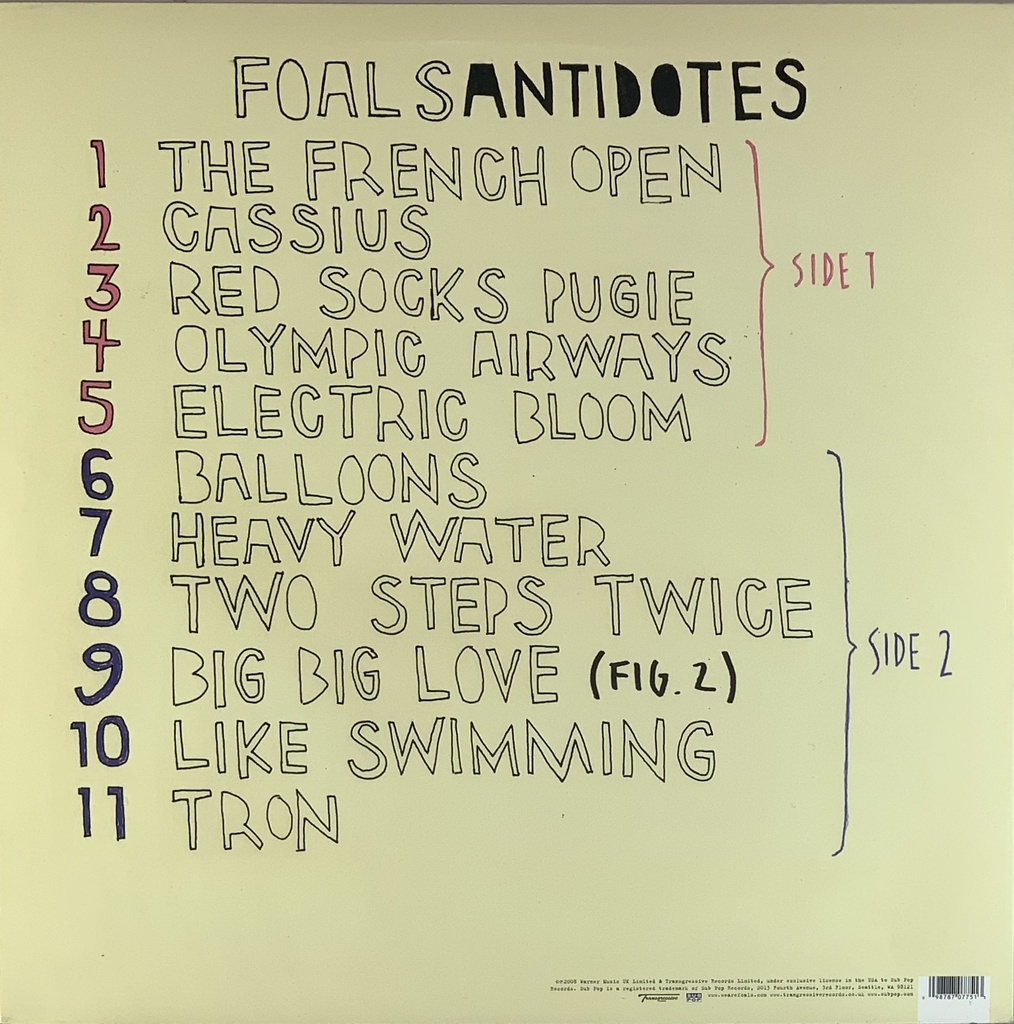 FOALS ANTIDOTES
1 THE FRENCH OPEN
2 CASSIUS
3 RED SOCKS PUGIE
4 OLYMPIC AIRWAYS
5 ELECTRIC BLOOM
SIDE 1
6 BALLOONS
7 HEAVY WATER
8 TWO STEPS TWICE
9 BIG BIG LOVE (FIG. 2)
10 LIKE SWIMMING
11 TRON
SIDE 2
©℗2008 Warner Music UK Limited & Transgressive Records Limited, under exclusive license in the USA to Sub Pop
Records. Sub Pop is a registered trademark of Sub Pop Records, 2013 Fourth Avenue, 3rd Floor, Seattle, WA 98121
Transgressive SUB POP www.wearefoals.com www.transgressiverecords.co.uk www.subpop.com
98787 07751